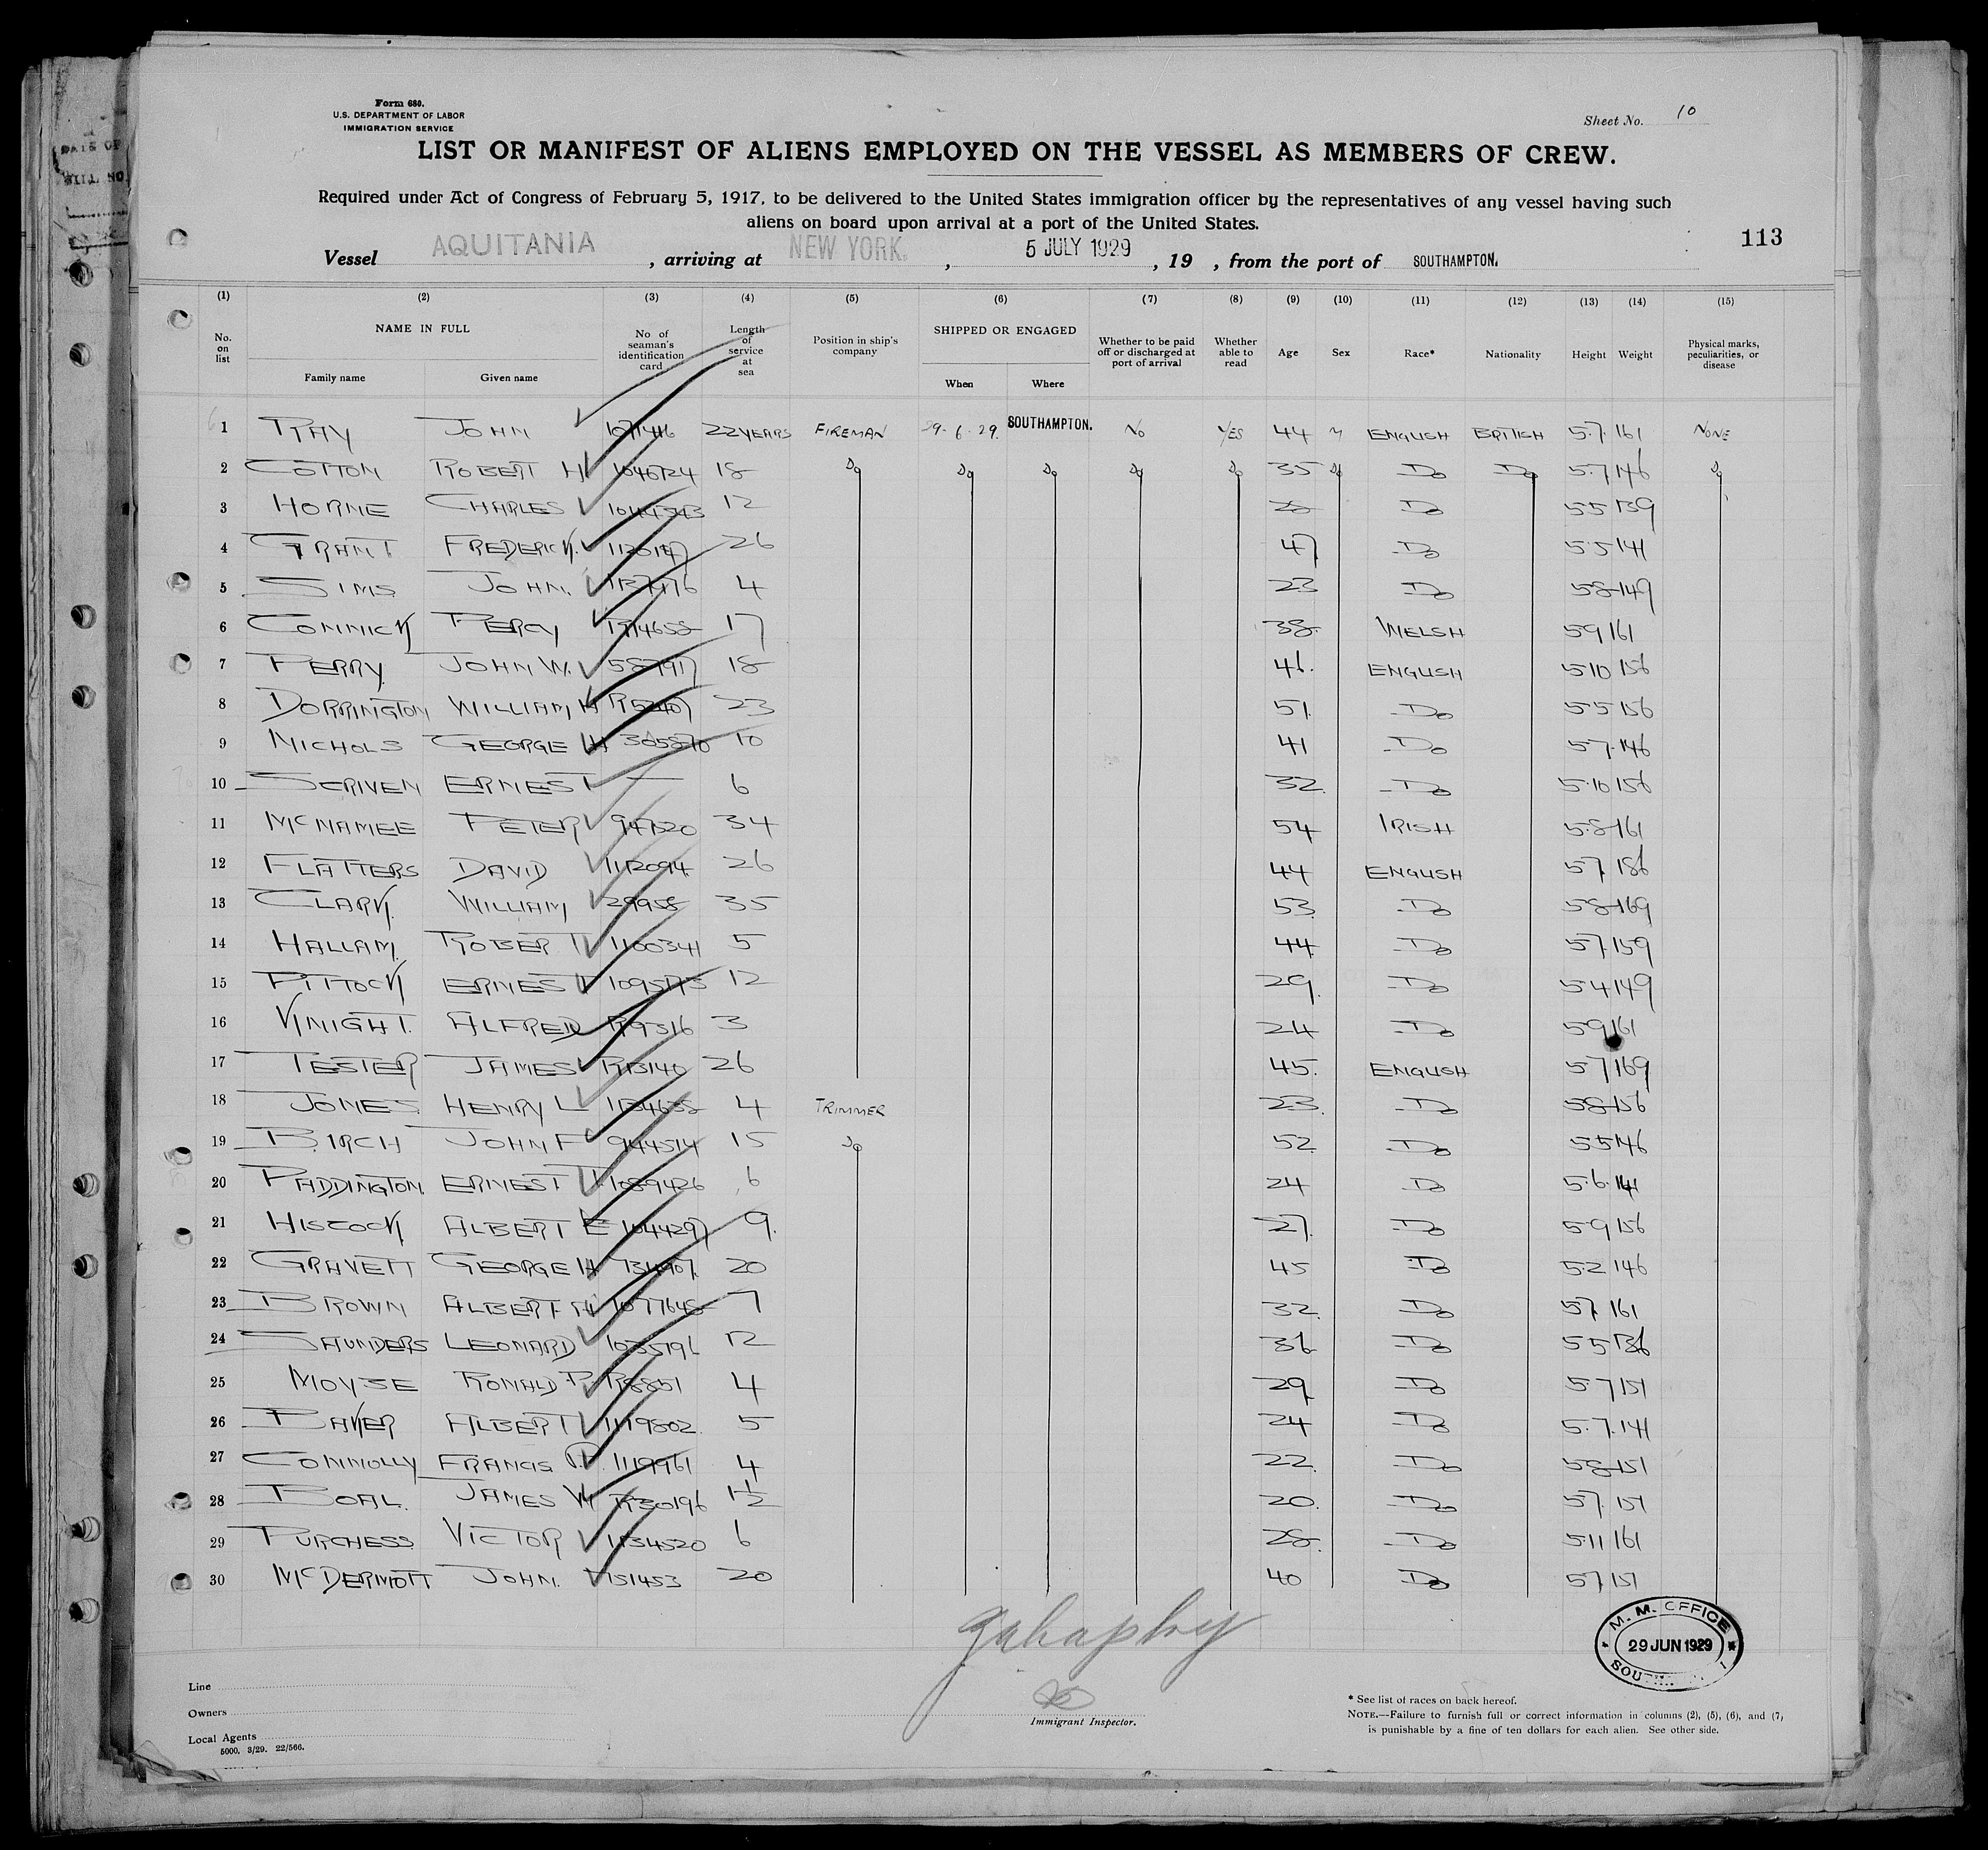 Form 680.
U.S. DEPARTMENT OF LABOR
IMMIGRATION SERVICE
Sheet No. 10
LIST OR MANIFEST OF ALIENS EMPLOYED ON THE VESSEL AS MEMBERS OF CREW.
Required under Act of Congress of February 5, 1917, to be delivered to the United States immigration officer by the representatives of any vessel having such
aliens on board upon arrival at a port of the United States.
113
Vessel AQUITANIA, arriving at NEW YORK, 5 JULY 1929, 19 , from the port of SOUTHAMPTON.
(1) (2) (3) (4) (5) (6) (7) (8) (9) (10) (11) (12) (13) (14) (15)
No. on list NAME IN FULL Family name Given name No of seaman's identification card Length of service at sea Position in ship's company SHIPPED OR ENGAGED When Where Whether to be paid off or discharged at port of arrival Whether able to read Age Sex Race* Nationality Height Weight Physical marks, peculiarities, or disease
1 JOHN 22 YEARS FIREMAN 29.6.29. SOUTHAMPTON. NO YES 44 M ENGLISH BRITISH 5.7. 161 NONE
2 COTTON ROBERT H 1046724 18 Do Do Do Do Do 35 Do Do Do 5.7 146 Do
3 HORNE CHARLES 12 Do 5 5 139
4 GRANT FREDERICK. 26 47 Do 5.5 141
5 SIMS JOHN. 4 23 Do 5 8 149
6 PERCY 17 38 WELSH 5 9 161
7 PERRY JOHN W. 587917 18 46. ENGLISH 5 10 156
8 DORRINGTON WILLIAM H 23 51 Do 5 5 156
9 NICHOLS GEORGE H 305870 10 41 Do 5 7. 146
10 SCRIVEN ERNEST — 6 32. Do 5.10 156
11 McNAMEE PETER 34 54 IRISH 5.8 161
12 FLATTERS DAVID 1112094 26 44 ENGLISH 5 7. 186
13 CLARK. WILLIAM 29958 35 53. Do 5 8 169
14 HALLAM. ROBERT 1100341 5 44. Do 5 7. 159
15 PITTOCK ERNEST 12 29. Do 5 4 149
16 KNIGHT. ALFRED R9316 3 24 Do 5 9 161
17 TESTER JAMES R13140 26 45. ENGLISH 5 7 169
18 JONES HENRY L 1134638 4 TRIMMER 23. Do 5 8 156
19 BIRCH JOHN F 944514 15 Do 52. Do 5 5 146
20 PADDINGTON. ERNEST 1089426 6 24 Do 5.6. 141
21 HISCOCK ALBERT E 1044297 9. 27. Do 5 9 156
22 GRAVETT GEORGE H 20 45 Do 5.2 146
23 BROWN ALBERT H 1077648 7 32. Do 5 7. 161
24 SAUNDERS LEONARD 1035196 12 36 Do 5 5 136
25 MOYSE RONALD R. R8851 4 29 Do 5.7 151
26 BAKER ALBERT 1119802 5 24 Do 5.7. 141
27 CONNOLLY FRANCIS 1119961 4 22. Do 5 8 151
28 BOAL. JAMES W R30196 1½ 20. Do 5 7. 151
29 PURCHESS VICTOR 1134520 6 28. Do 5.11 161
30 McDERMOTT JOHN. 151453 20 40 Do 5 7. 151
M. M. OFFICE
29 JUN 1929
Line
Owners
Local Agents
5000. 3/29. 22/566.
Immigrant Inspector.
* See list of races on back hereof.
NOTE.—Failure to furnish full or correct information in columns (2), (5), (6), and (7)
is punishable by a fine of ten dollars for each alien. See other side.